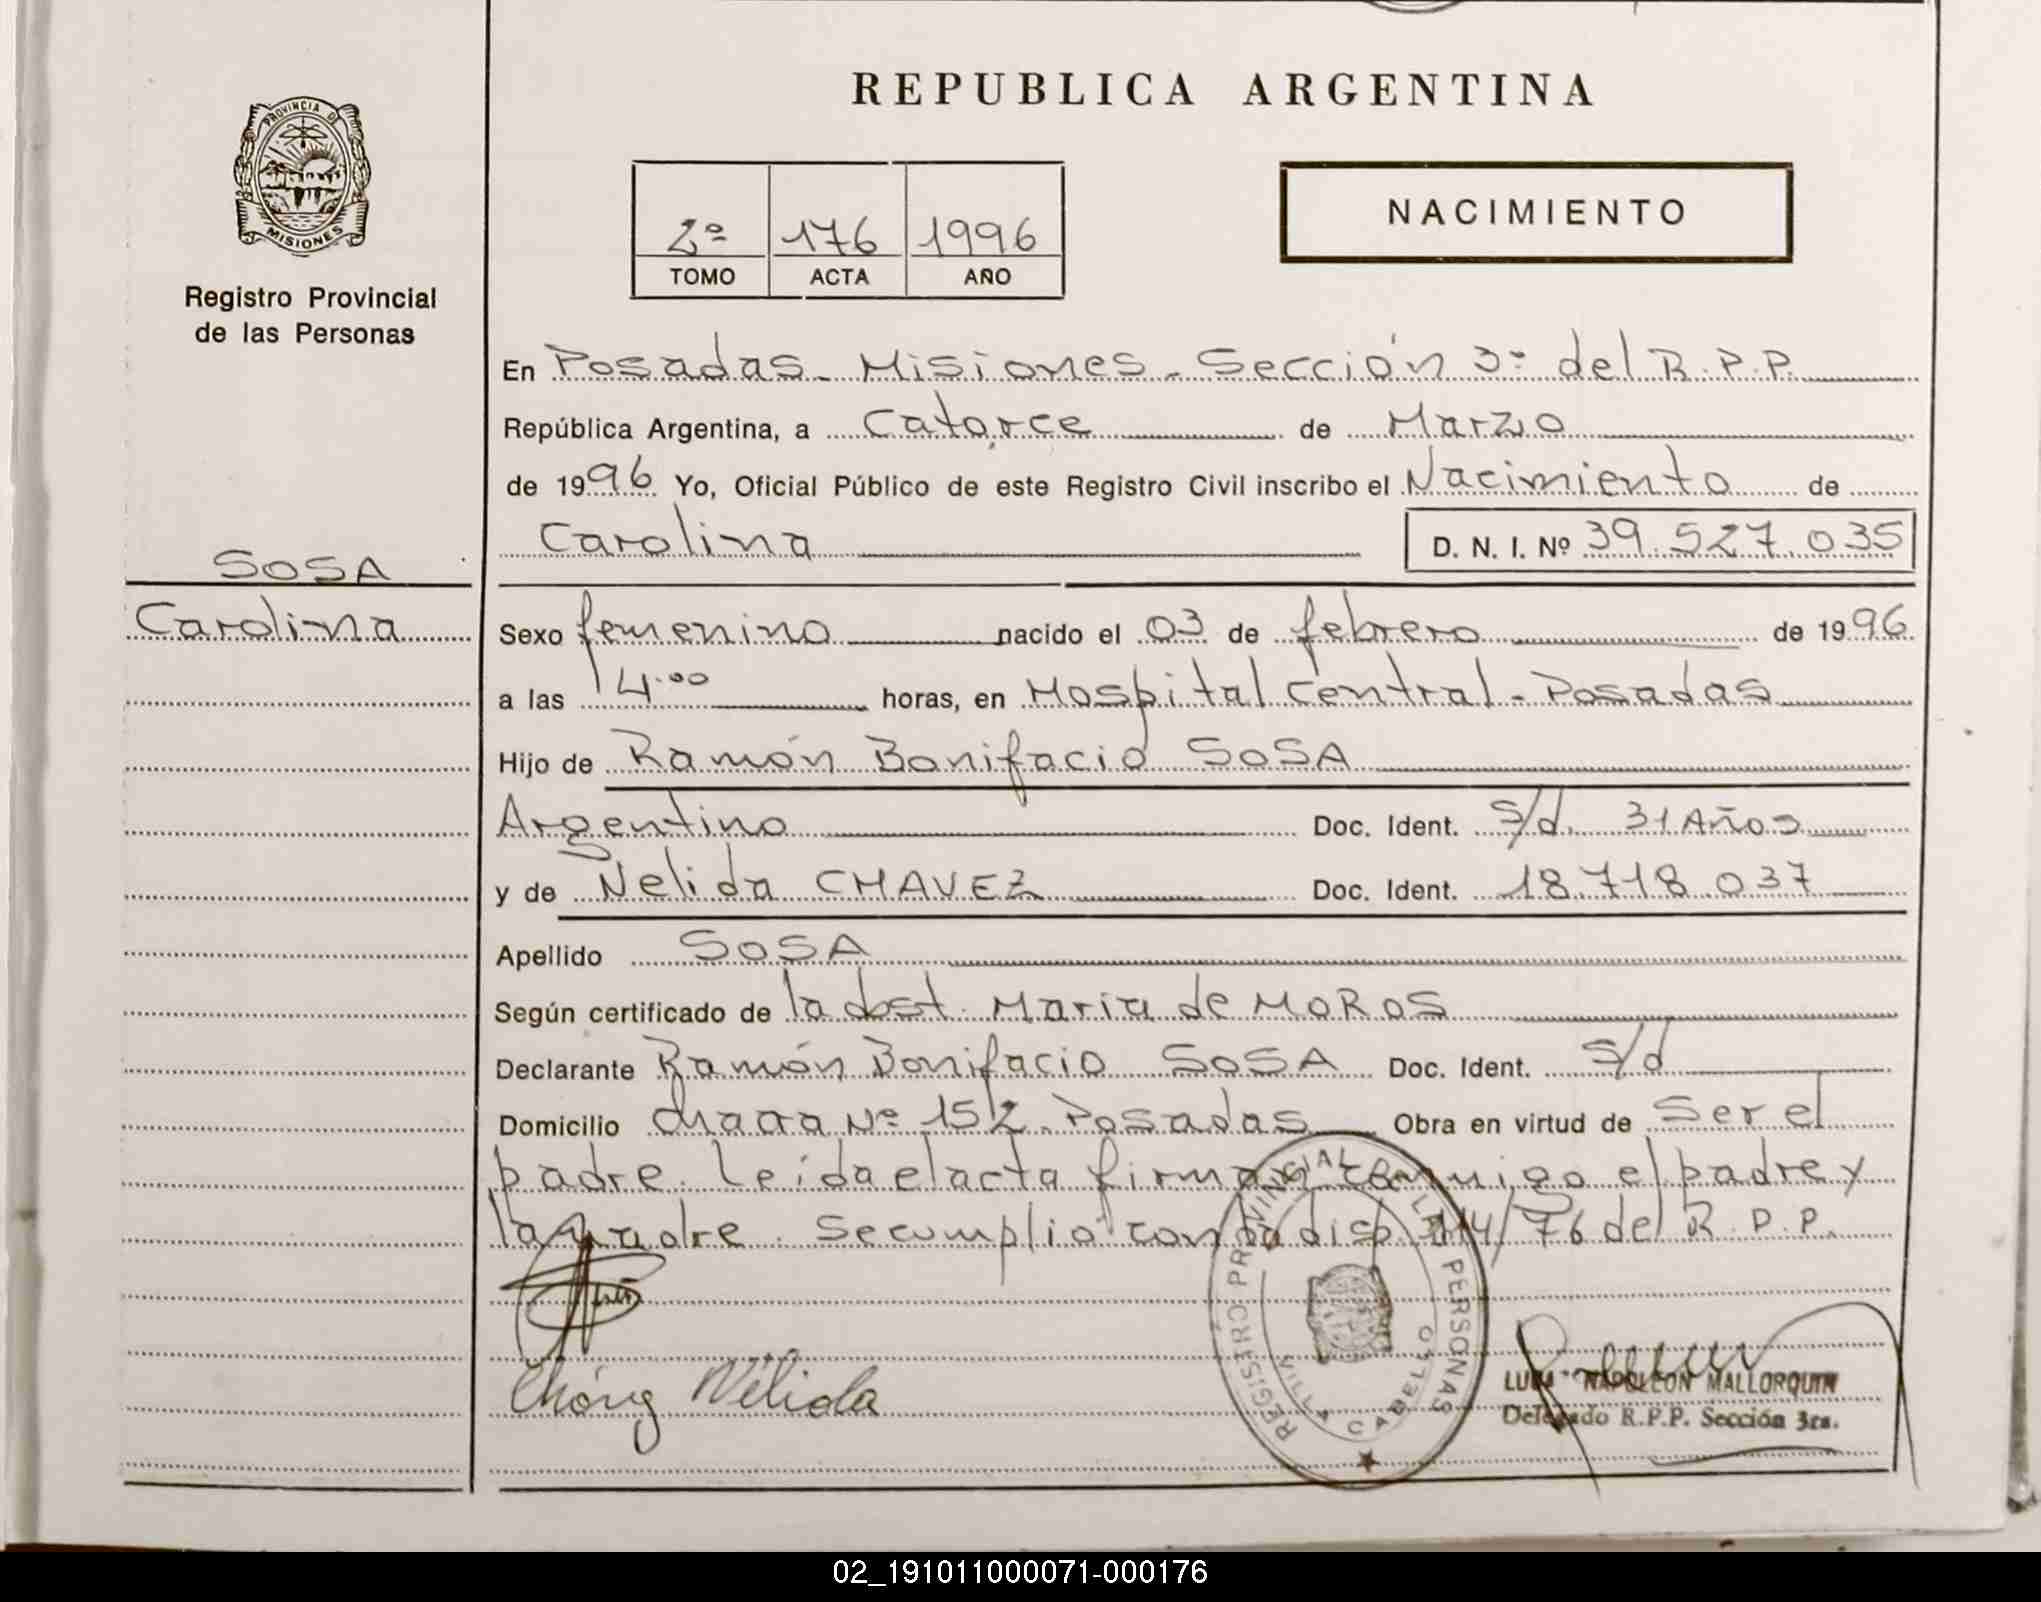 REPUBLICA ARGENTINA
PROVINCIA DE
MISIONES
Registro Provincial
de las Personas
2º 176 1996
TOMO ACTA AÑO
NACIMIENTO
En Posadas - Misiones - Sección 3º del R.P.P.
República Argentina, a Catorce de Marzo
de 1996 Yo, Oficial Público de este Registro Civil inscribo el Nacimiento de
Carolina D. N. I. Nº 39.527.035
SOSA
Carolina
Sexo femenino nacido el 03 de febrero de 1996
a las 14.00 horas, en Hospital Central - Posadas
Hijo de Ramón Bonifacio SOSA
Argentino Doc. Ident. s/d. 31 Años
y de Nelida CHAVEZ Doc. Ident. 18.718.037
Apellido SOSA
Según certificado de la obst. Maria de MOROS
Declarante Ramón Bonifacio SOSA Doc. Ident. s/d
Domicilio chacra Nº 152 - Posadas Obra en virtud de ser el
padre. Leida el acta firman conmigo el padre y
la madre. Se cumplió con la disp. 114/76 del R.P.P.
Nélida
REGISTRO PROVINCIAL DE LAS PERSONAS
VILLA CABELLO
NAPOLEON MALLORQUIN
Delegado R.P.P. Sección 3ra.
02_191011000071-000176